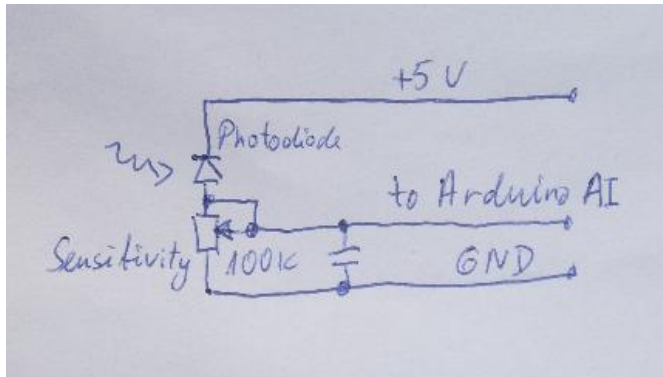 +5 V
Photodiode
to Arduino AI
Sensitivity
100K
GND